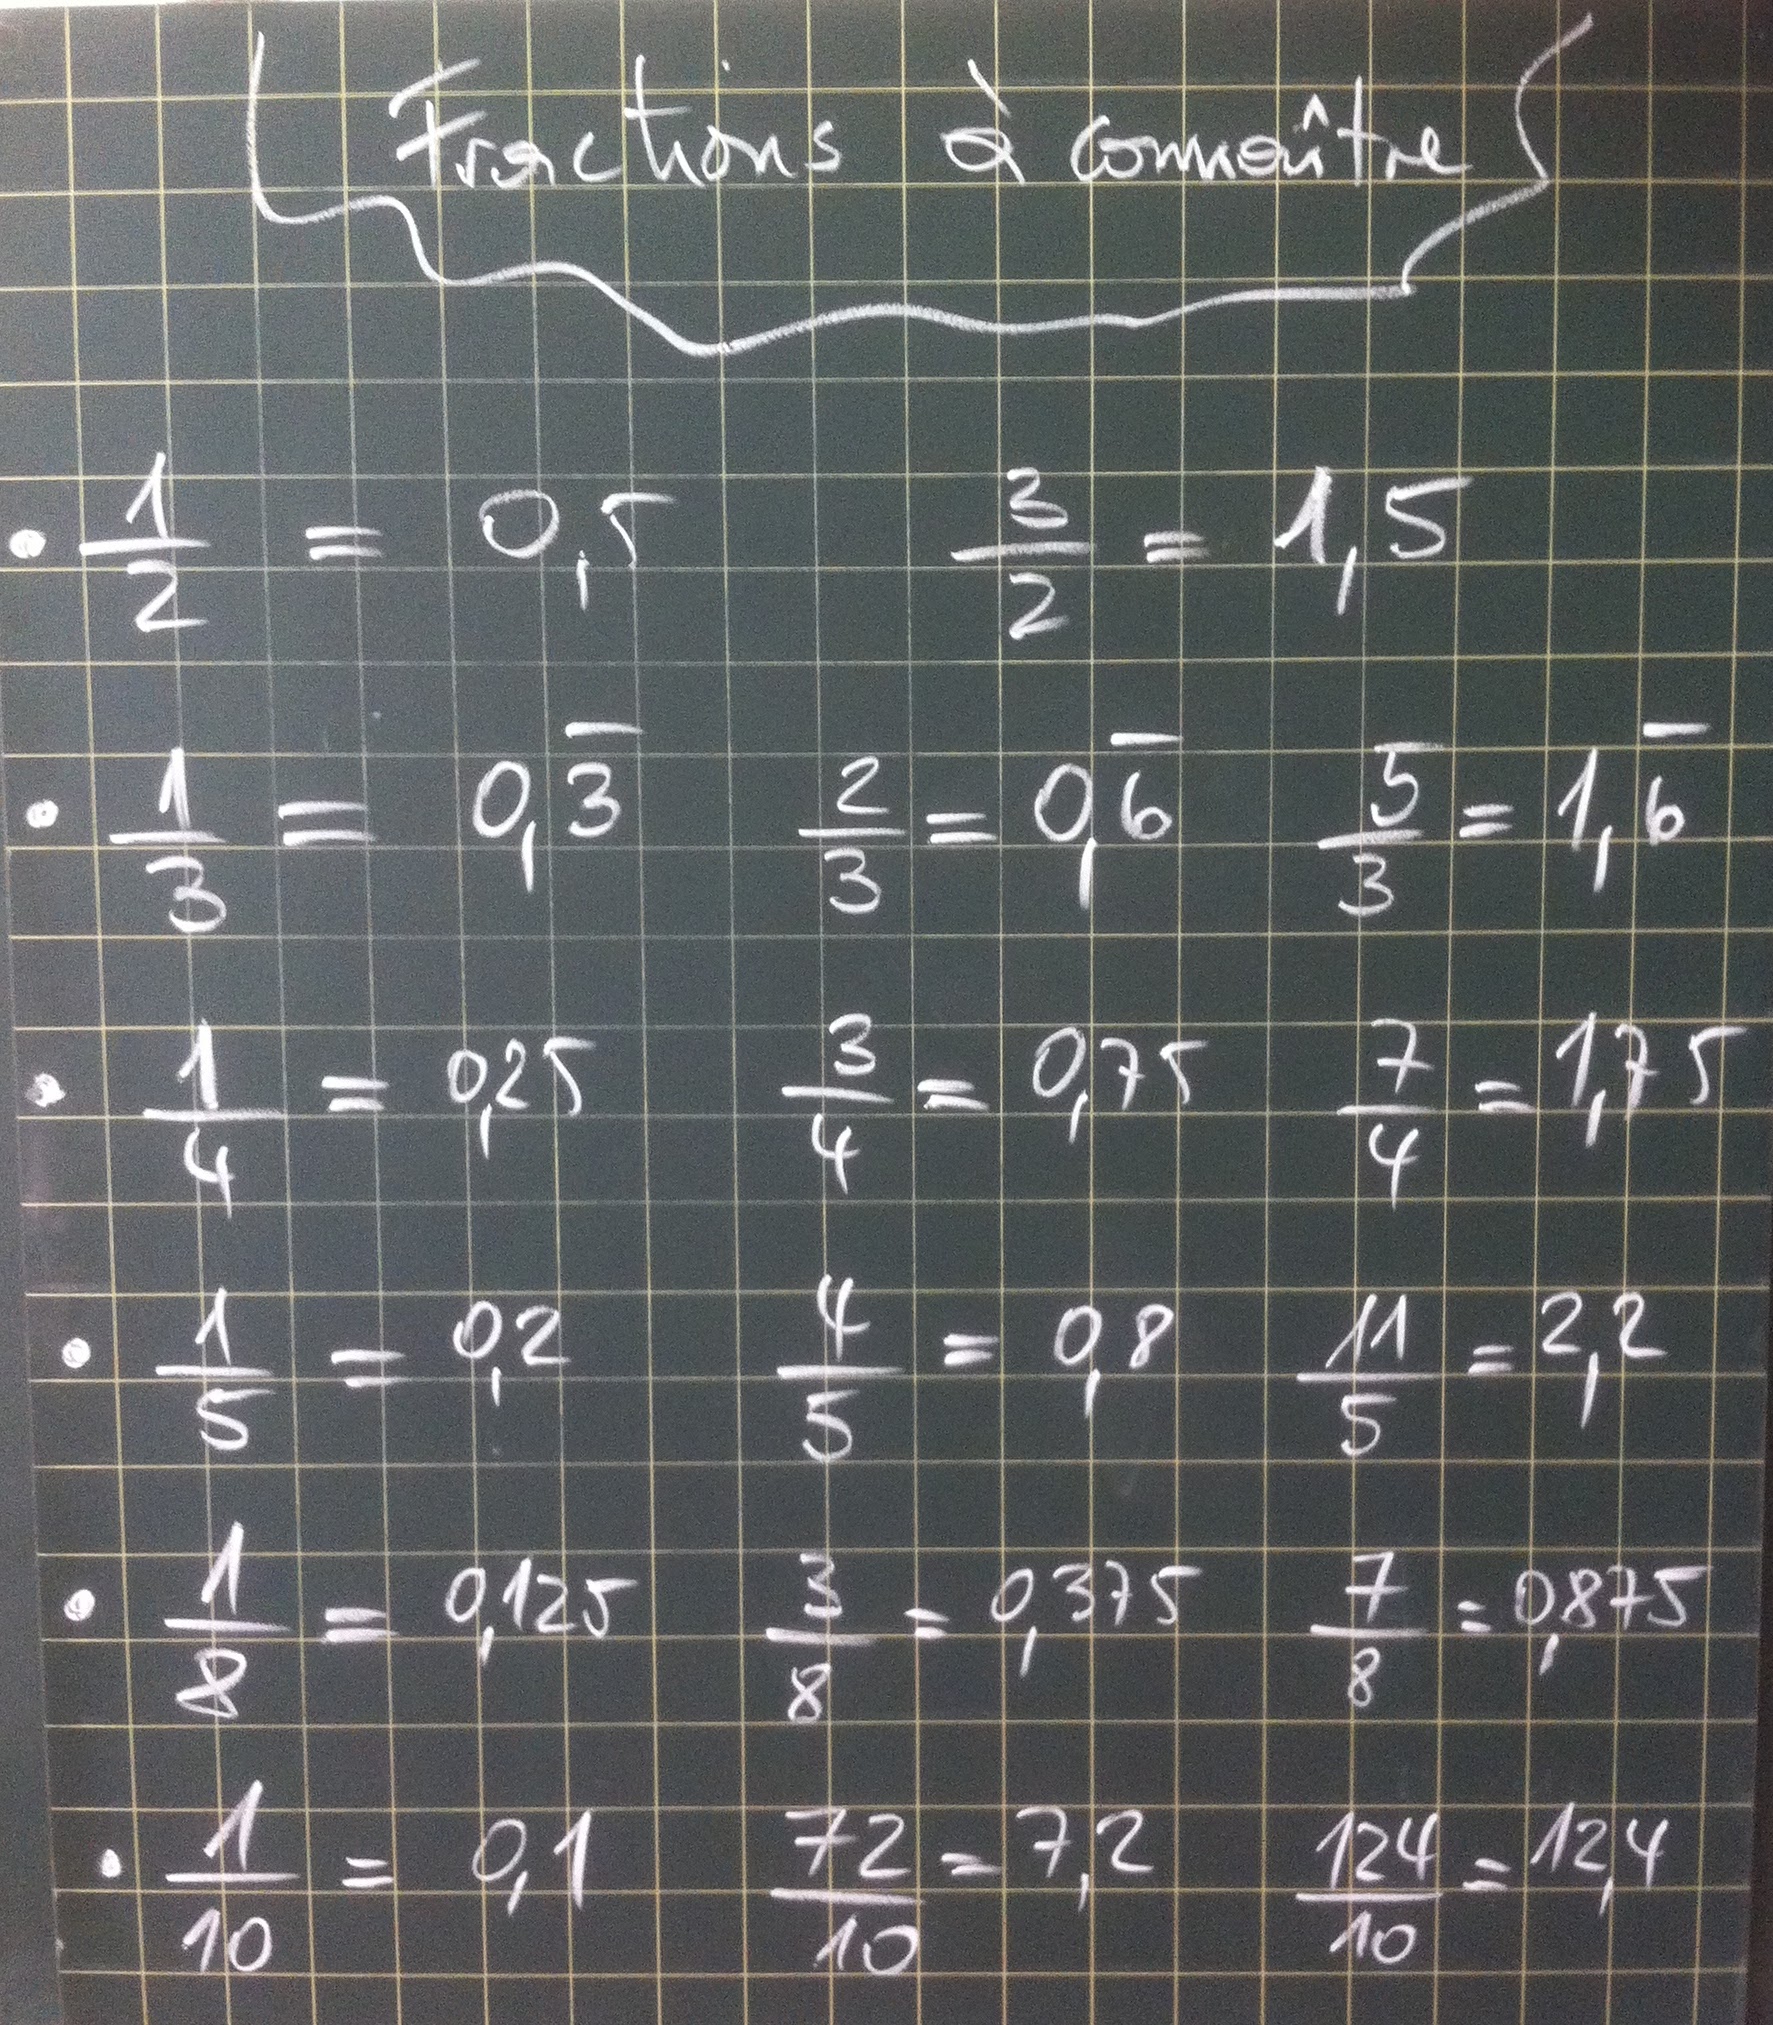 Fractions à connaître
• 1/2 = 0,5 3/2 = 1,5
• 1/3 = 0,3̅ 2/3 = 0,6̅ 5/3 = 1,6̅
• 1/4 = 0,25 3/4 = 0,75 7/4 = 1,75
• 1/5 = 0,2 4/5 = 0,8 11/5 = 2,2
• 1/8 = 0,125 3/8 = 0,375 7/8 = 0,875
• 1/10 = 0,1 72/10 = 7,2 124/10 = 12,4